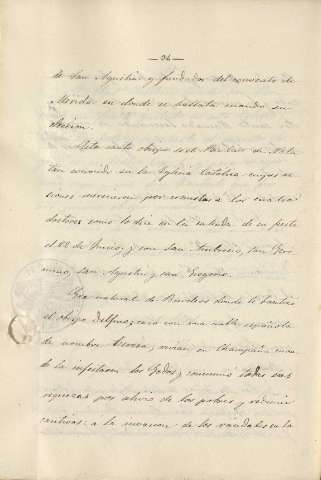 — 94 —
de San Agustin y fundador del convento de
Mérida en donde se hallaba cuando su
eleccion.
Este santo obispo es el Paulino de Nola
tan conocido en la Iglesia Catolica cuyas ac
ciones merecieron por consultas a los cuatro
doctores como lo dice en la entrada de su fiesta
el 22 de Junio, y son San Ambrosio, San Gero
nimo, San Agustin y San Gregorio.
Era natural de Burdeos donde le bautizó
el obispo Delfino; casó con una noble española
de nombre Teresa, vivian en Champaña cuan
do la infestaron los Godos, y consumió todas sus
riquezas por alivio de los pobres y redimir
cautivos: a la invasion de los vándalos en la